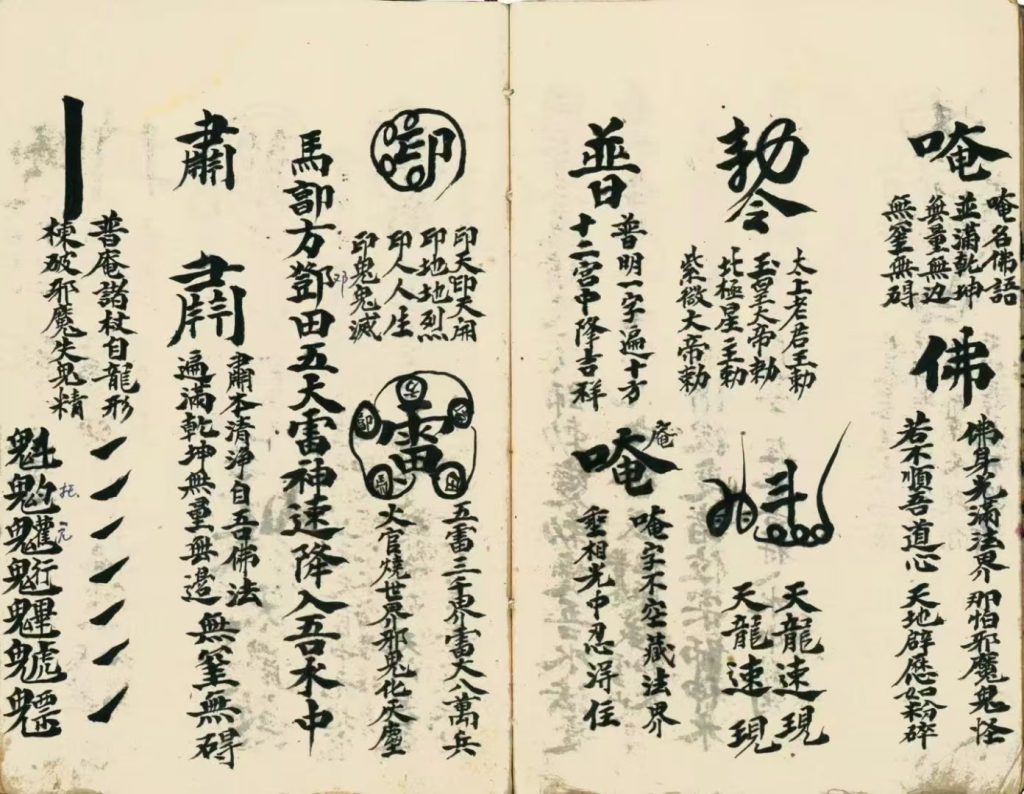 唵
唵名佛語
並滿乾坤
無量無边
無筀無碍
佛
佛身光滿法界那怕邪魔鬼怪
若不順吾道心天地霹𮚑如粉碎
勅令
太上老君王勅
玉皇大帝勅
北極星主勅
紫微大帝勅
天龍速現
天龍速現
普
普明一字遍十方
十二宮中降吉祥
唵
庵
唵字不空藏法界
重相光中忍淂住
印
印天印天開
印地地烈
印人人生
印鬼鬼滅
雷
五雷三千界雷火八萬兵
火官燒世界邪鬼化天塵
馬郭方鄧田五大雷神速降入吾水中
邓
肅
肅本清淨自吾佛法
遍滿乾坤無量無邊無筀無碍
普庵諸杖自龍形
棟破邪魔失鬼精
魁
䰢
托
魓
魒